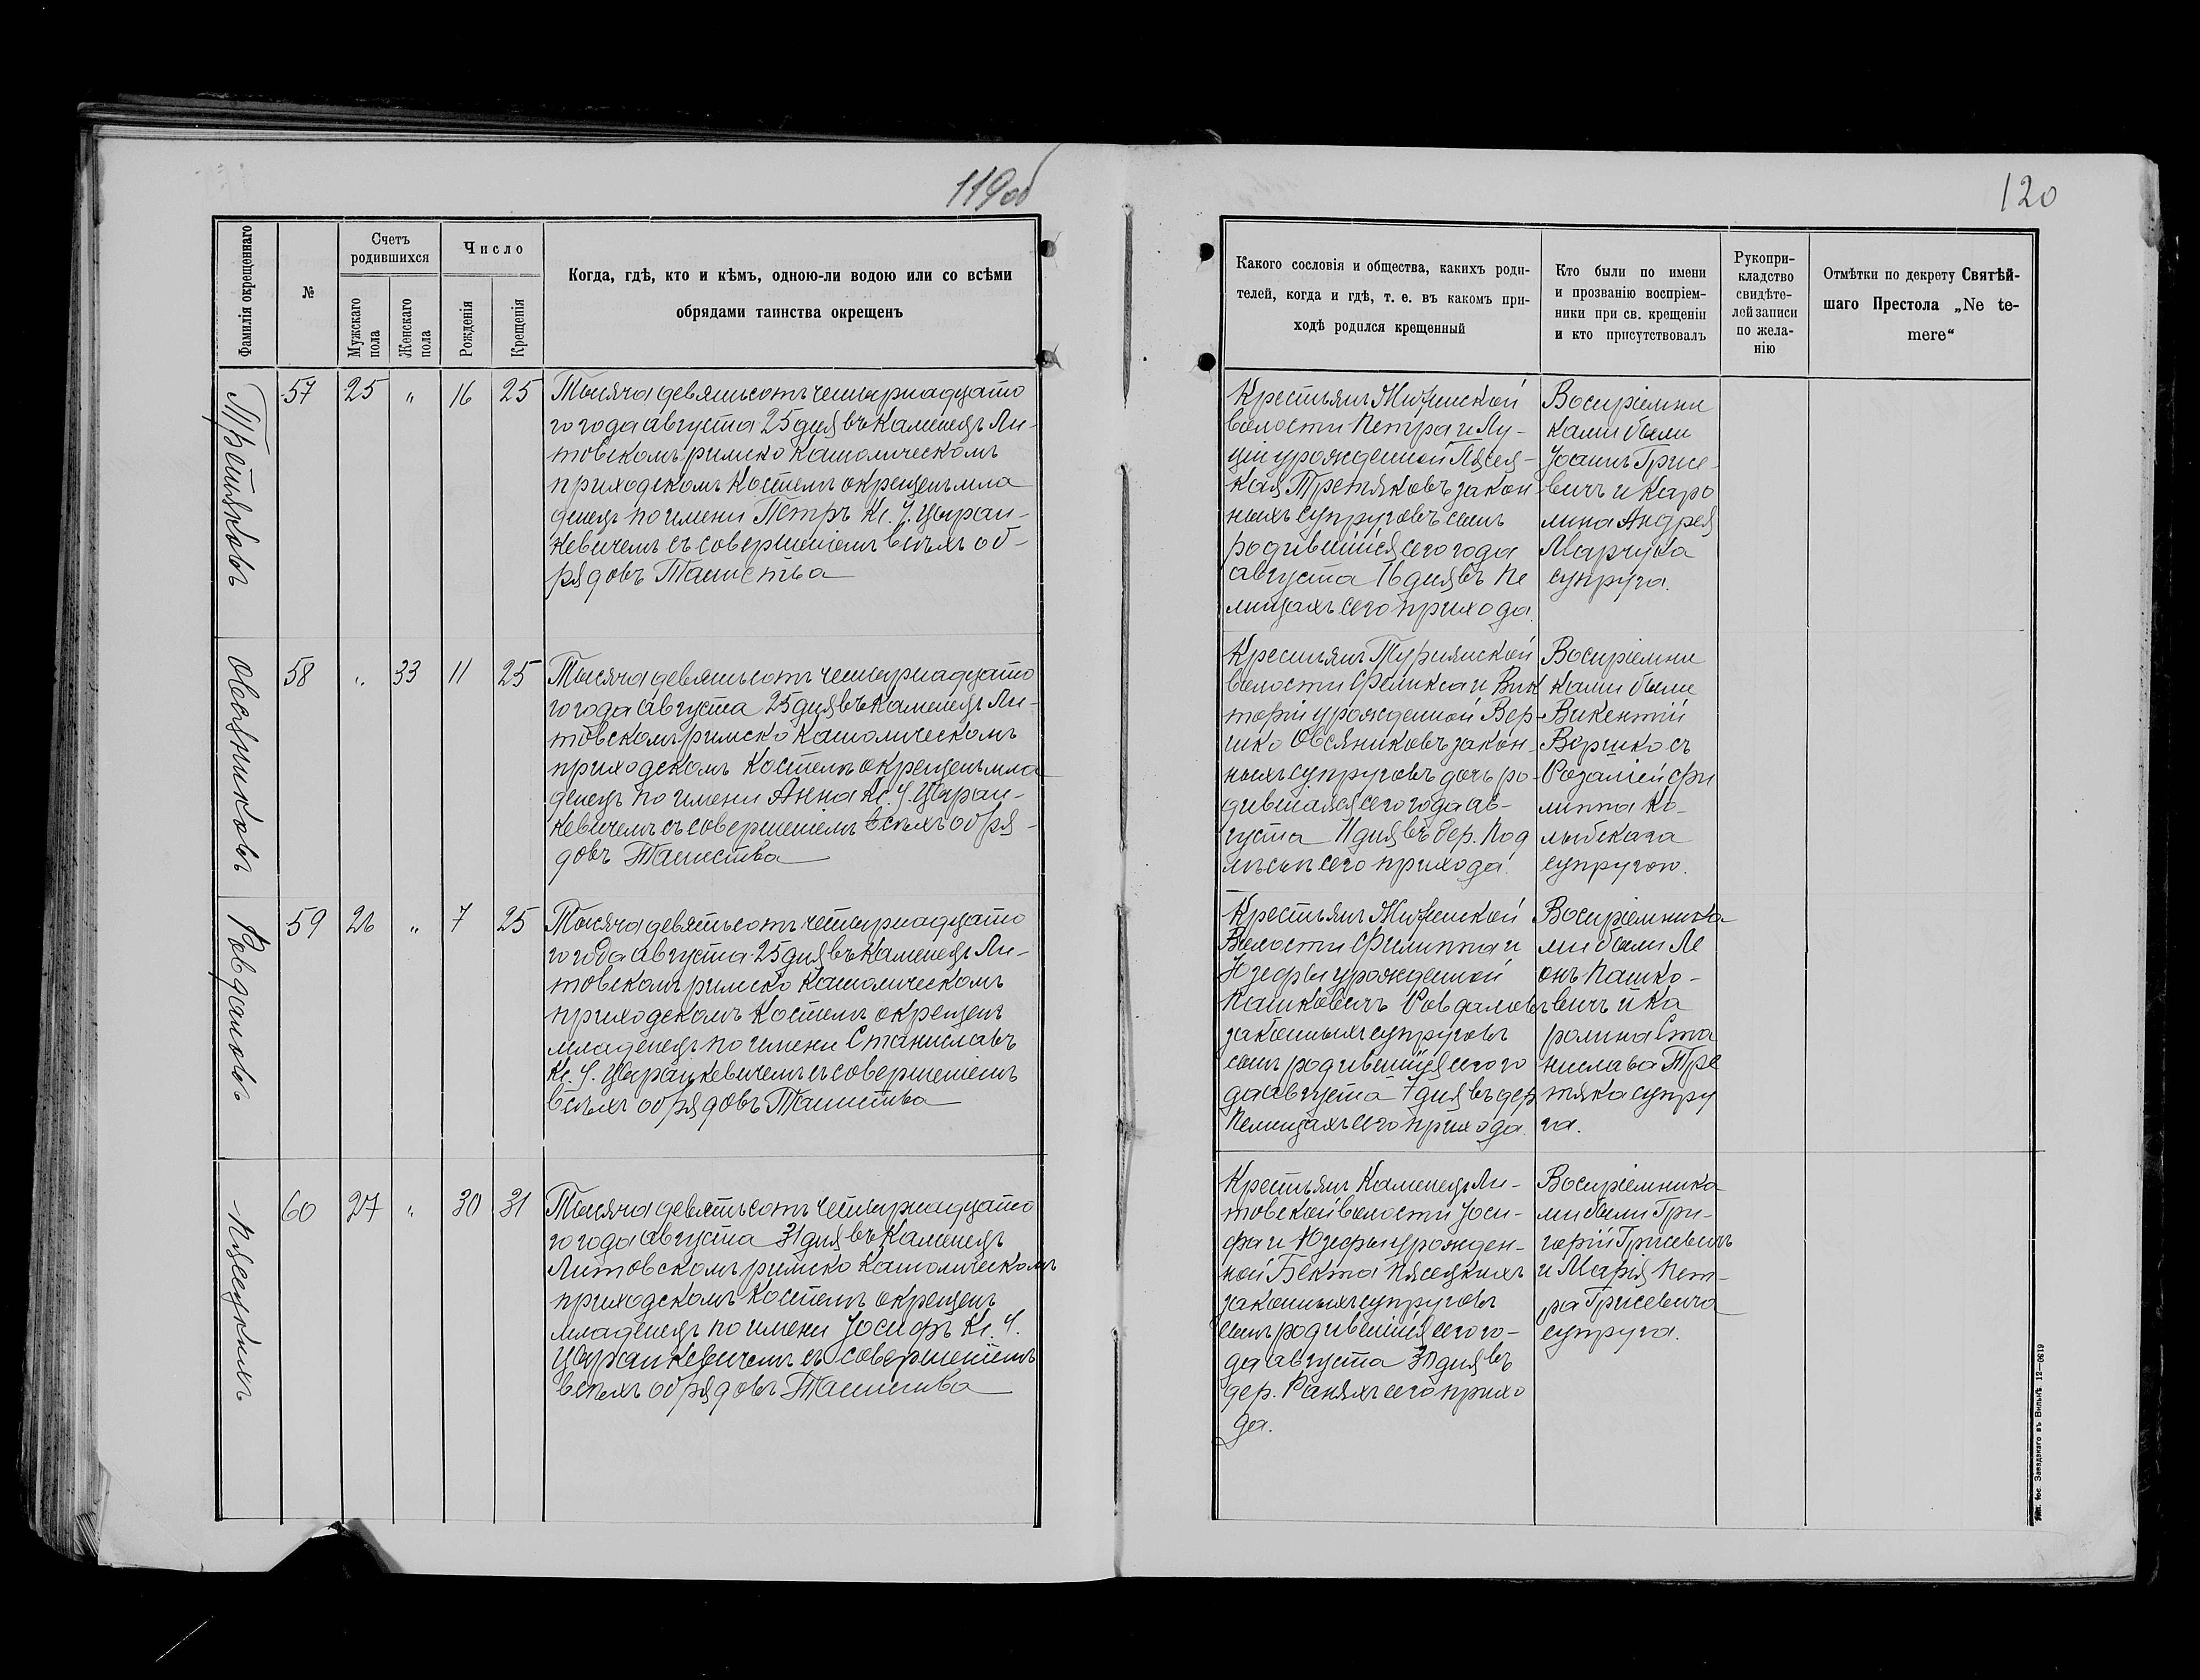 119об
Фамилія окрещеннаго
№
Счетъ
родившихся
Мужскаго
пола
Женскаго
пола
Число
Рожденія
Крещенія
Когда, гдѣ, кто и кѣмъ, одною-ли водою или со всѣми
обрядами таинства окрещенъ
Третьяковъ
57 25 „ 16 25
Тысяча девятьсотъ четырнадцато
го года августа 25 дня въ Каменецъ Ли-
товскомъ римско католическомъ
приходскомъ костелѣ окрещенъ мла
денецъ по имени Петръ Кс. І. Цыран-
кевичемъ съ совершеніемъ всѣхъ об-
рядовъ Таинства
Овсяниковъ
58 „ 33 11 25
Тысяча девятьсотъ четырнадцато
го года августа 25 дня въ Каменецъ Ли-
товскомъ римско католическомъ
приходскомъ костелѣ окрещенъ мла
денецъ по имени Анна Кс. І. Цыран-
кевичемъ съ совершеніемъ всѣхъ обря-
довъ Таинства
Ровдаловъ
59 26 „ 7 25
Тысяча девятьсотъ четырнадцато
го года августа 25 дня въ Каменецъ Ли-
товскомъ римско католическомъ
приходскомъ костелѣ окрещенъ
младенецъ по имени Станиславъ
Кс. І. Цыранкевичемъ съ совершеніемъ
всѣхъ обрядовъ Таинства
Пясецкихъ
60 27 „ 30 31
Тысяча девятьсотъ четырнадцато
го года августа 31 дня въ Каменецъ
Литовскомъ римско католическомъ
приходскомъ костелѣ окрещенъ
младенецъ по имени Іосифъ Кс. І.
Цыранкевичемъ съ совершеніемъ
всѣхъ обрядовъ Таинства
120
Какого сословія и общества, какихъ роди-
телей, когда и гдѣ, т. е. въ какомъ при-
ходѣ родился крещенный
Кто были по имени
и прозванію воспріем-
ники при св. крещеніи
и кто присутствовалъ
Рукопри-
кладство
свидѣте-
лей записи
по жела-
нію
Отмѣтки по декрету Святѣй-
шаго Престола „Ne te-
mere“
Крестьянъ
волости Петра и Лу-
ціи урожденной
Третьяковъ закон-
ныхъ супруговъ сынъ
родившійся сего года
августа 16 дня въ Пе
лищахъ сего прихода.
Воспріемни
ками были
Іоаннъ Грисе-
вичъ и Каро
лина Андрея
Марчука
супруга.
Крестьянъ Турнянской
волости Феликса и Вик
торіи урожденной Вер-
шко Овсяниковъ закон-
ныхъ супруговъ дочь ро-
дившаяся сего года ав-
густа 11 дня въ дер. Под
лѣсьи сего прихода.
Воспріемни
ками были
Викентій
Вершко съ
Розаліей Фи
липпа Ко-
лыбскаго
супругою.
Крестьянъ
Волости Филиппа и
Юзефы урожденной
Пашковичъ Ровдаловъ
законныхъ супруговъ
сынъ родившійся сего го
да августа 7 дня въ дер
Пелищахъ сего прихода.
Воспріемника
ми были Ле
онъ Пашко-
вичъ и Ка
ролина Ста
нислава Тре
тяка супру
га.
Крестьянъ Каменецъ Ли-
товской волости Іоси-
фа и Юзефы урожден-
ной Бекта Пясецкихъ
законныхъ супруговъ
сынъ родившійся сего го-
да августа 30 дня въ
дер. Раняхъ сего прихо
да.
Воспріемника
ми были Гри-
горій Грисевичъ
и Марія Пет-
ра Грисевича
супруга.
Тип. Іос. Завадзкаго въ Вильнѣ. 12—0619